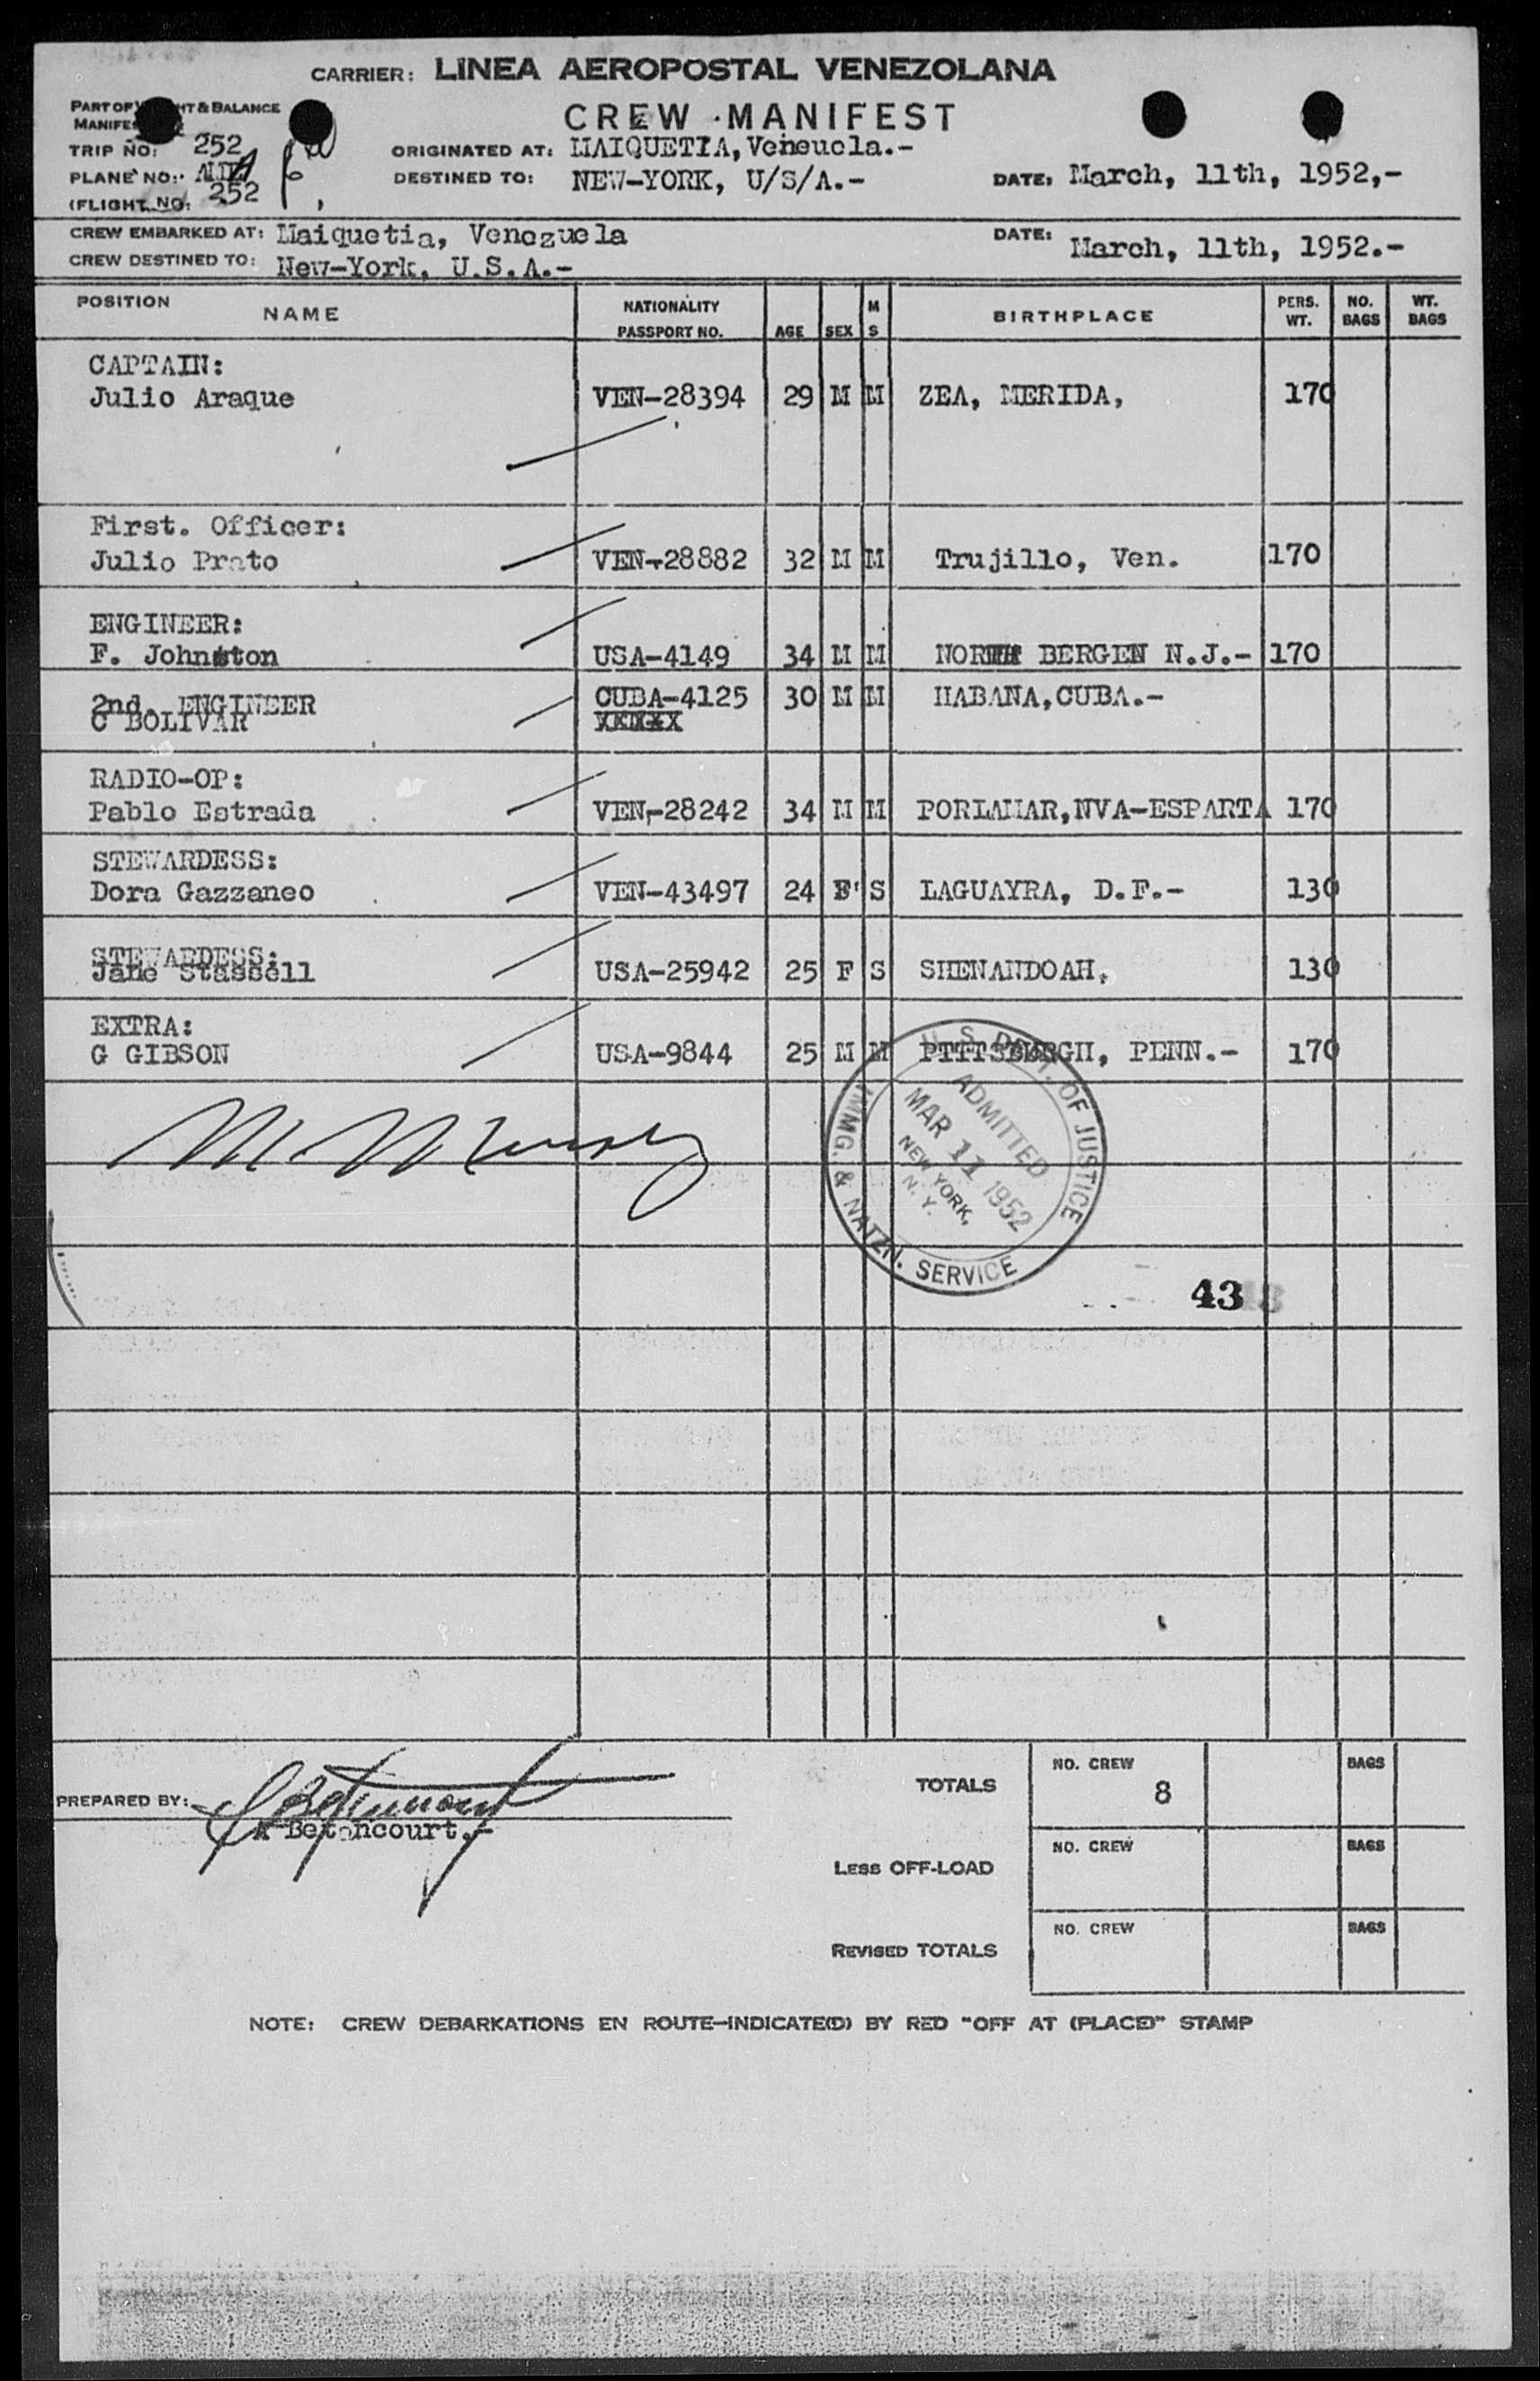 CARRIER: LINEA AEROPOSTAL VENEZOLANA
PART OF & BALANCE
CREW MANIFEST
TRIP NO: 252
ORIGINATED AT: MAIQUETIA, Veneucla.-
PLANE NO:
DESTINED TO: NEW-YORK, U/S/A.-
DATE: March, 11th, 1952,-
(FLIGHT NO: 252
CREW EMBARKED AT: Maiquetia, Venezuela
DATE: March, 11th, 1952.-
CREW DESTINED TO: New-York, U.S.A.-
POSITION NAME NATIONALITY PASSPORT NO. AGE SEX M S BIRTHPLACE PERS. WT. NO. BAGS WT. BAGS
CAPTAIN:
Julio Araque VEN-28394 29 M M ZEA, MERIDA, 170
First. Officer:
Julio Prato VEN-28882 32 M M Trujillo, Ven. 170
ENGINEER:
F. Johnston USA-4149 34 M M NORTH BERGEN N.J.- 170
2nd. ENGINEER CUBA-4125 30 M M HABANA,CUBA.-
C BOLIVAR
RADIO-OP:
Pablo Estrada VEN-28242 34 M M PORLAMAR,NVA-ESPARTA 170
STEWARDESS:
Dora Gazzaneo VEN-43497 24 F S LAGUAYRA, D.F.- 130
STEWARDESS:
Jane Stassell USA-25942 25 F S SHENANDOAH, 130
EXTRA:
G GIBSON USA-9844 25 M M PITTSBURGH, PENN.- 170
U. S. DEPT. OF JUSTICE
ADMITTED
MAR 11 1952
NEW YORK,
N. Y.
IMMG. & NATZN. SERVICE
43
TOTALS NO. CREW 8 BAGS
PREPARED BY:
Betancourt.-
LESS OFF-LOAD NO. CREW BAGS
REVISED TOTALS NO. CREW BAGS
NOTE: CREW DEBARKATIONS EN ROUTE-INDICATE(D) BY RED "OFF AT (PLACE)" STAMP